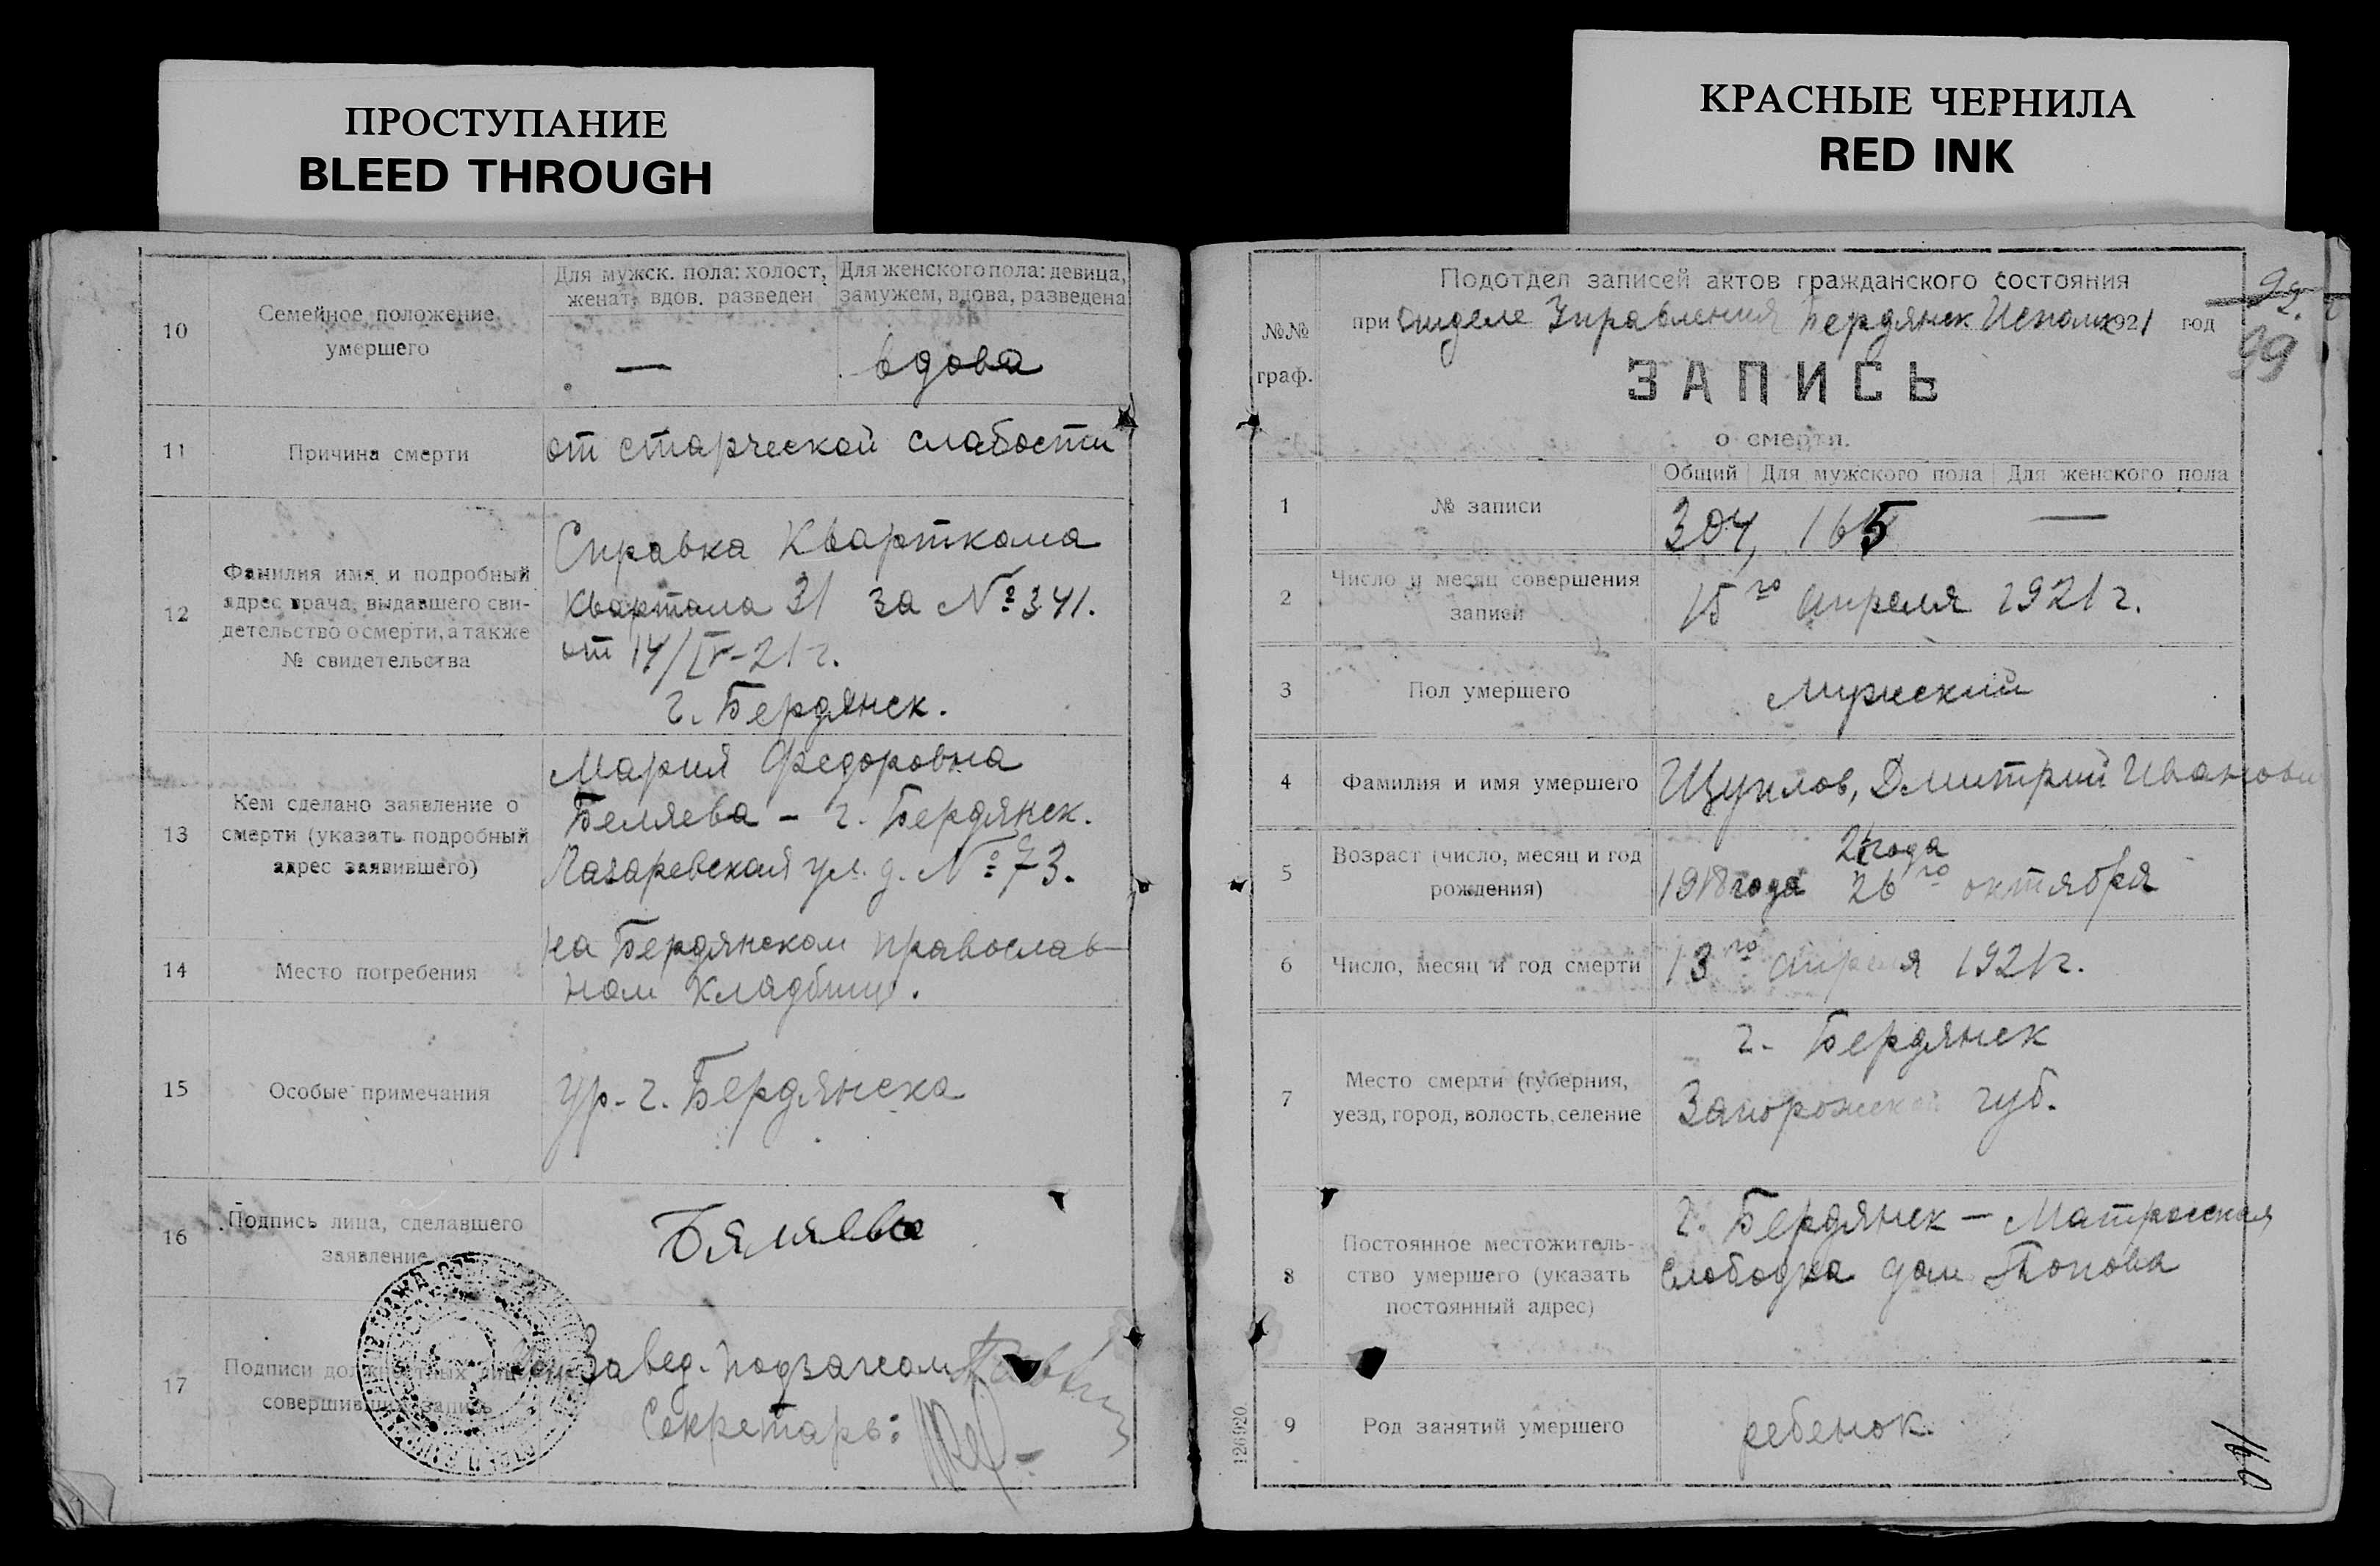 ПРОСТУПАНИЕ
BLEED THROUGH
10
Семейное положение
умершего
Для мужск. пола: холост,
женат, вдов. разведен
Для женского пола: девица,
замужем, вдова, разведена
—
вдова
11
Причина смерти
от старческой слабости
12
Фамилия имя и подробный
адрес врача, выдавшего сви-
детельство о смерти, а также
№ свидетельства
Справка Кварткома
квартала 31 за № 341.
от 14/IV-21 г.
г. Бердянск.
13
Кем сделано заявление о
смерти (указать подробный
адрес заявившего)
Мария Федоровна
Беляева – г. Бердянск.
Лазаревская ул. д. № 73.
14
Место погребения
на Бердянском православ-
ном кладбище.
15
Особые примечания
ур. г. Бердянска
16
Подпись лица, сделавшего
заявление
Бяляева
17
Подписи должностных лиц
совершивших запись
Завед. подзагсом
Секретарь:
КРАСНЫЕ ЧЕРНИЛА
RED INK
99
№№
граф.
Подотдел записей актов гражданского состояния
при Отделе Управления Бердянск. Исполк 1921 год
ЗАПИСЬ
о смерти.
1
№ записи
Общий
Для мужского пола
Для женского пола
304, 165 —
2
Число и месяц совершения
записи
15го апреля 1921 г.
3
Пол умершего
мужский
4
Фамилия и имя умершего
Щуклов, Дмитрий Иванови
5
Возраст (число, месяц и год
рождения)
2 года
1918 года 26го октября
6
Число, месяц и год смерти
13го апреля 1921 г.
7
Место смерти (губерния,
уезд, город, волость, селение
г. Бердянск
Запорожской губ.
8
Постоянное местожитель-
ство умершего (указать
постоянный адрес)
г. Бердянск – Матросская
слободка дом Попова
9
Род занятий умершего
ребенок.
126920.